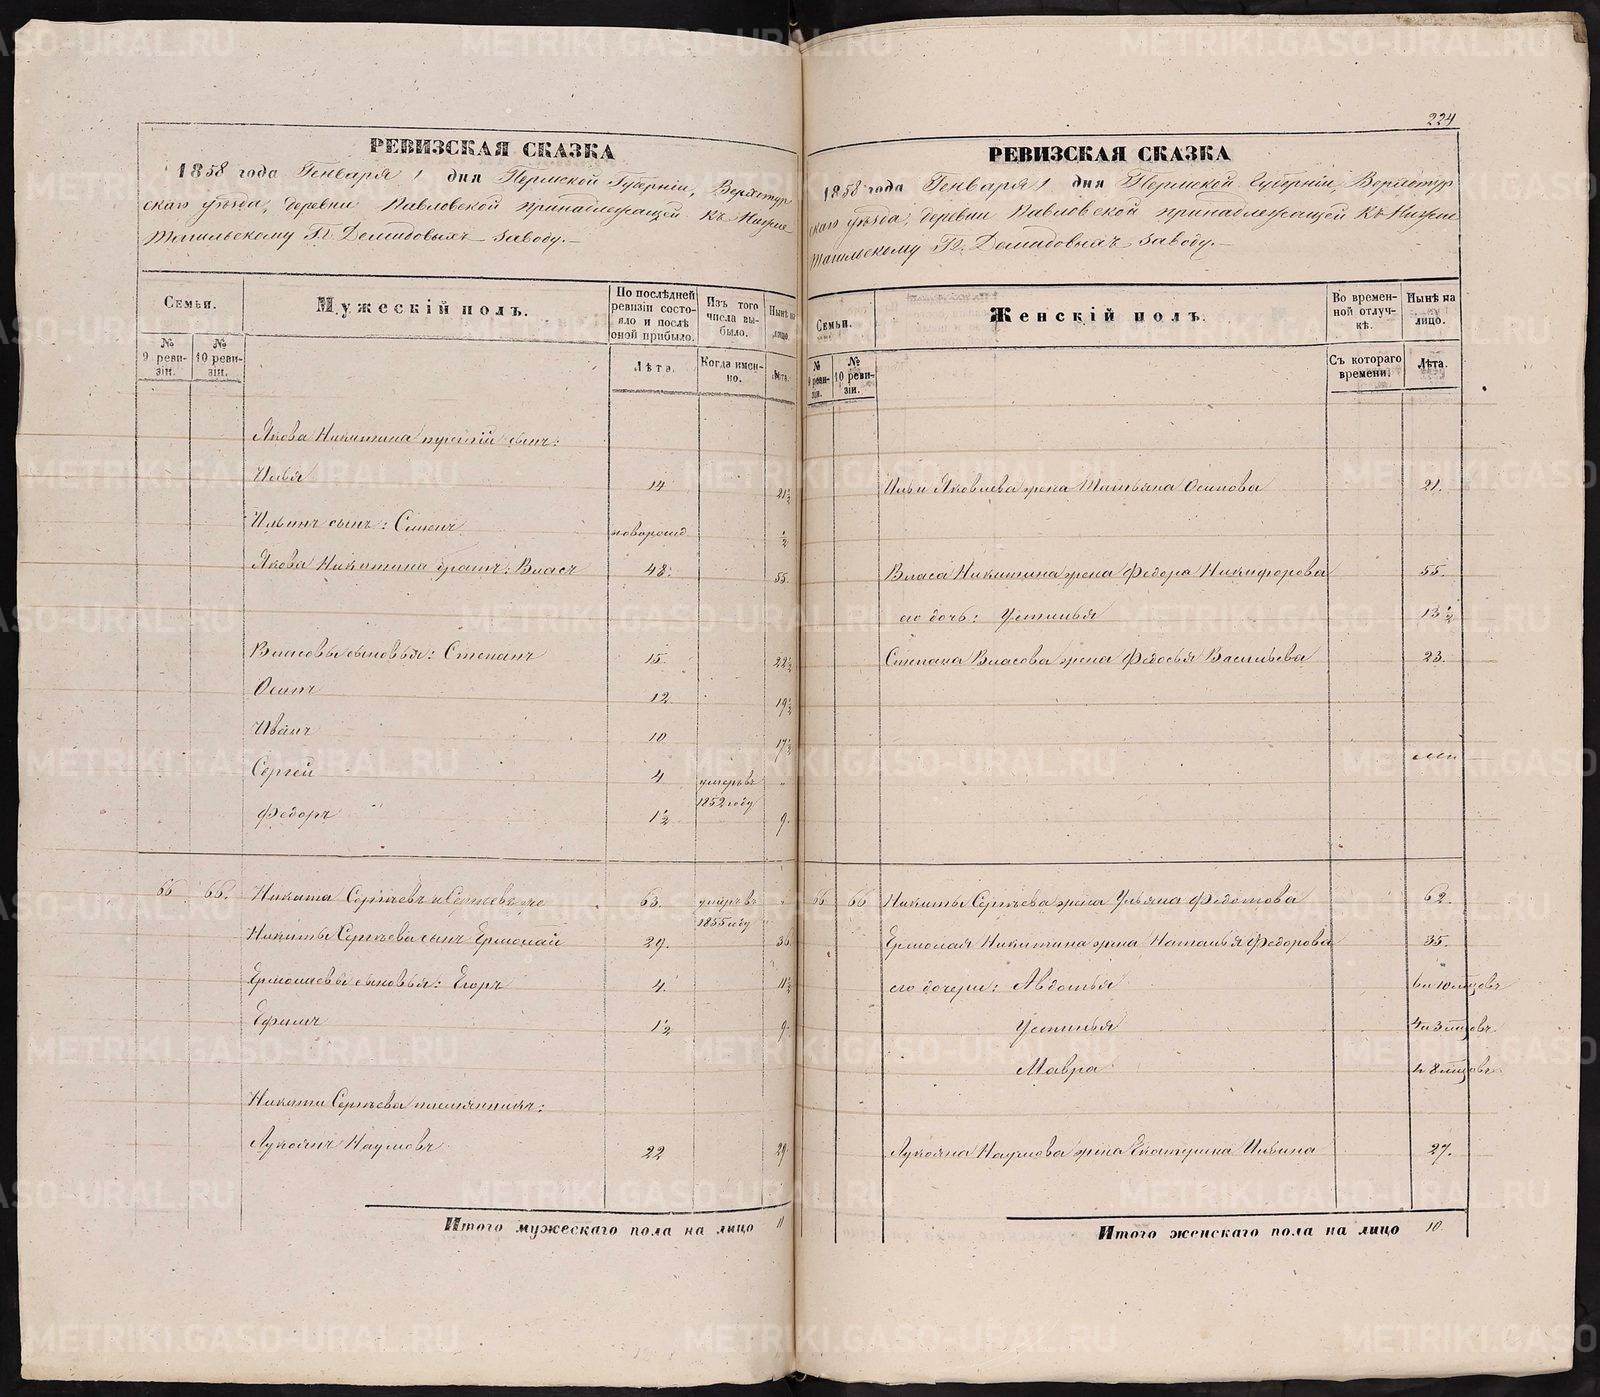 РЕВИЗСКАЯ СКАЗКА
1858 года Генваря 1 дня Пермской Губерніи, Верхотур
скаго уѣзда, деревни Павловской принадлежащей къ Нижне
Тагильскому Гг. Демидовыхъ заводу.—
Семьи.
Мужескій полъ.
По послѣдней ревизіи состояло и послѣ оной прибыло.
Изъ того числа выбыло.
Нынѣ на лицо.
№ 9 ревизіи.
№ 10 ревизіи.
Лѣта.
Когда именно.
Лѣта.
Якова Никитина сынъ:
Илья 14 21½
Ильинъ сынъ: Семенъ новорожд ½
Якова Никитина братъ: Власъ 48. 55.
Власовы сыновья: Степанъ 15. 22½
Осипъ 12 19½
Иванъ 10 17½
Сергей 4 умеръ въ 1852 году "
Федоръ 1½ 9.
66 66. Никита Сергѣевъ 63. умеръ въ 1855 году "
Никиты Сергѣева сынъ Ермолай 29. 36
Ермолаевы сыновья: Егоръ 4. 11½
Ефимъ 1½ 9.
Никиты Сергѣева племянникъ:
Лукоянъ Наумовъ 22 29
Итого мужескаго пола на лицо 11
224
РЕВИЗСКАЯ СКАЗКА
1858 года Генваря 1 дня Пермской Губерніи, Верхотур
скаго уѣзда, деревни Павловской принадлежащей къ Нижне
тагильскому Гг. Демидовыхъ заводу.—
Семьи.
Женскій полъ.
Во временной отлучкѣ.
Нынѣ на лицо.
№ 9 ревизіи.
№ 10 ревизіи.
Съ котораго времени.
Лѣта.
Ильи Яковлева жена Татьяна Осипова 21.
Власа Никитина жена Федора Никифорова 55.
его дочь: Устинья 13½
Степана Власова жена Федосья Васильева 23.
66 66 Никиты Сергѣева жена Ульяна Федотова 62.
Ермолая Никитина жена Наталья Федорова 35.
его дочери: Авдотья 6 и 10 мѣсяцовъ
Устинья 4 и 3 мѣсяцовъ
Мавра 8 мѣсяцовъ
Лукояна Наумова жена Екатерина Ильина 27.
Итого женскаго пола на лицо 10.
METRIKI.GASO-URAL.RU